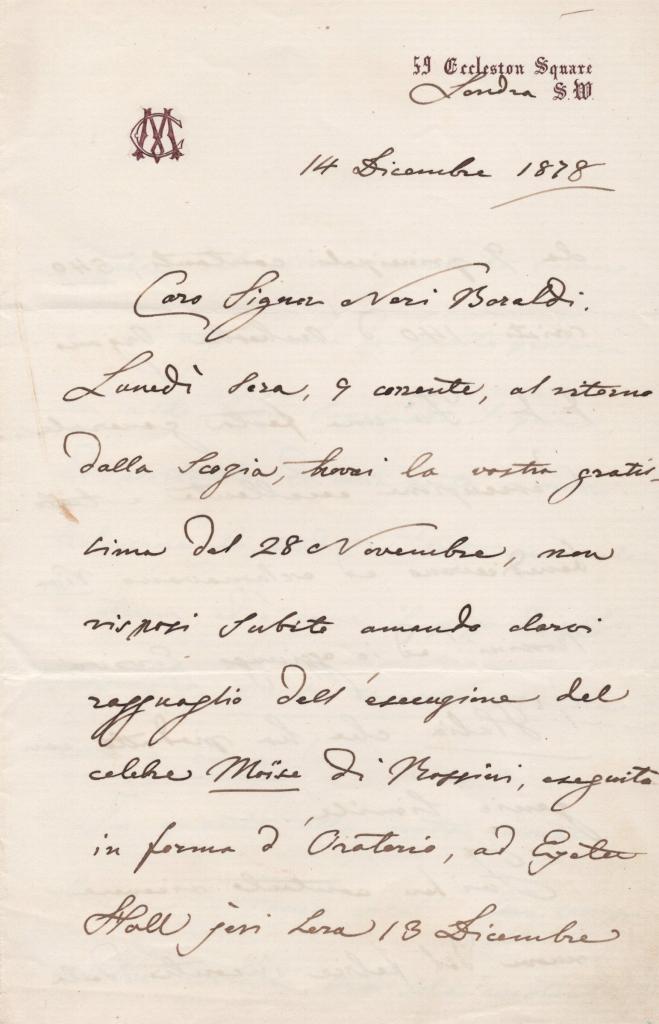 59 Eccleston Square
Londra S.W.
MC
14 Dicembre 1878
Caro Signor Neri Baraldi.
Lunedì sera, 9 corrente, al ritorno
dalla Scozia, trovai la vostra gratis-
sima del 28 Novembre, non
risposi subito amando darvi
ragguaglio dell'esecuzione del
celebre Moïse di Rossini, eseguito
in forma d'Oratorio, ad Exeter
Hall jeri sera 13 Dicembre